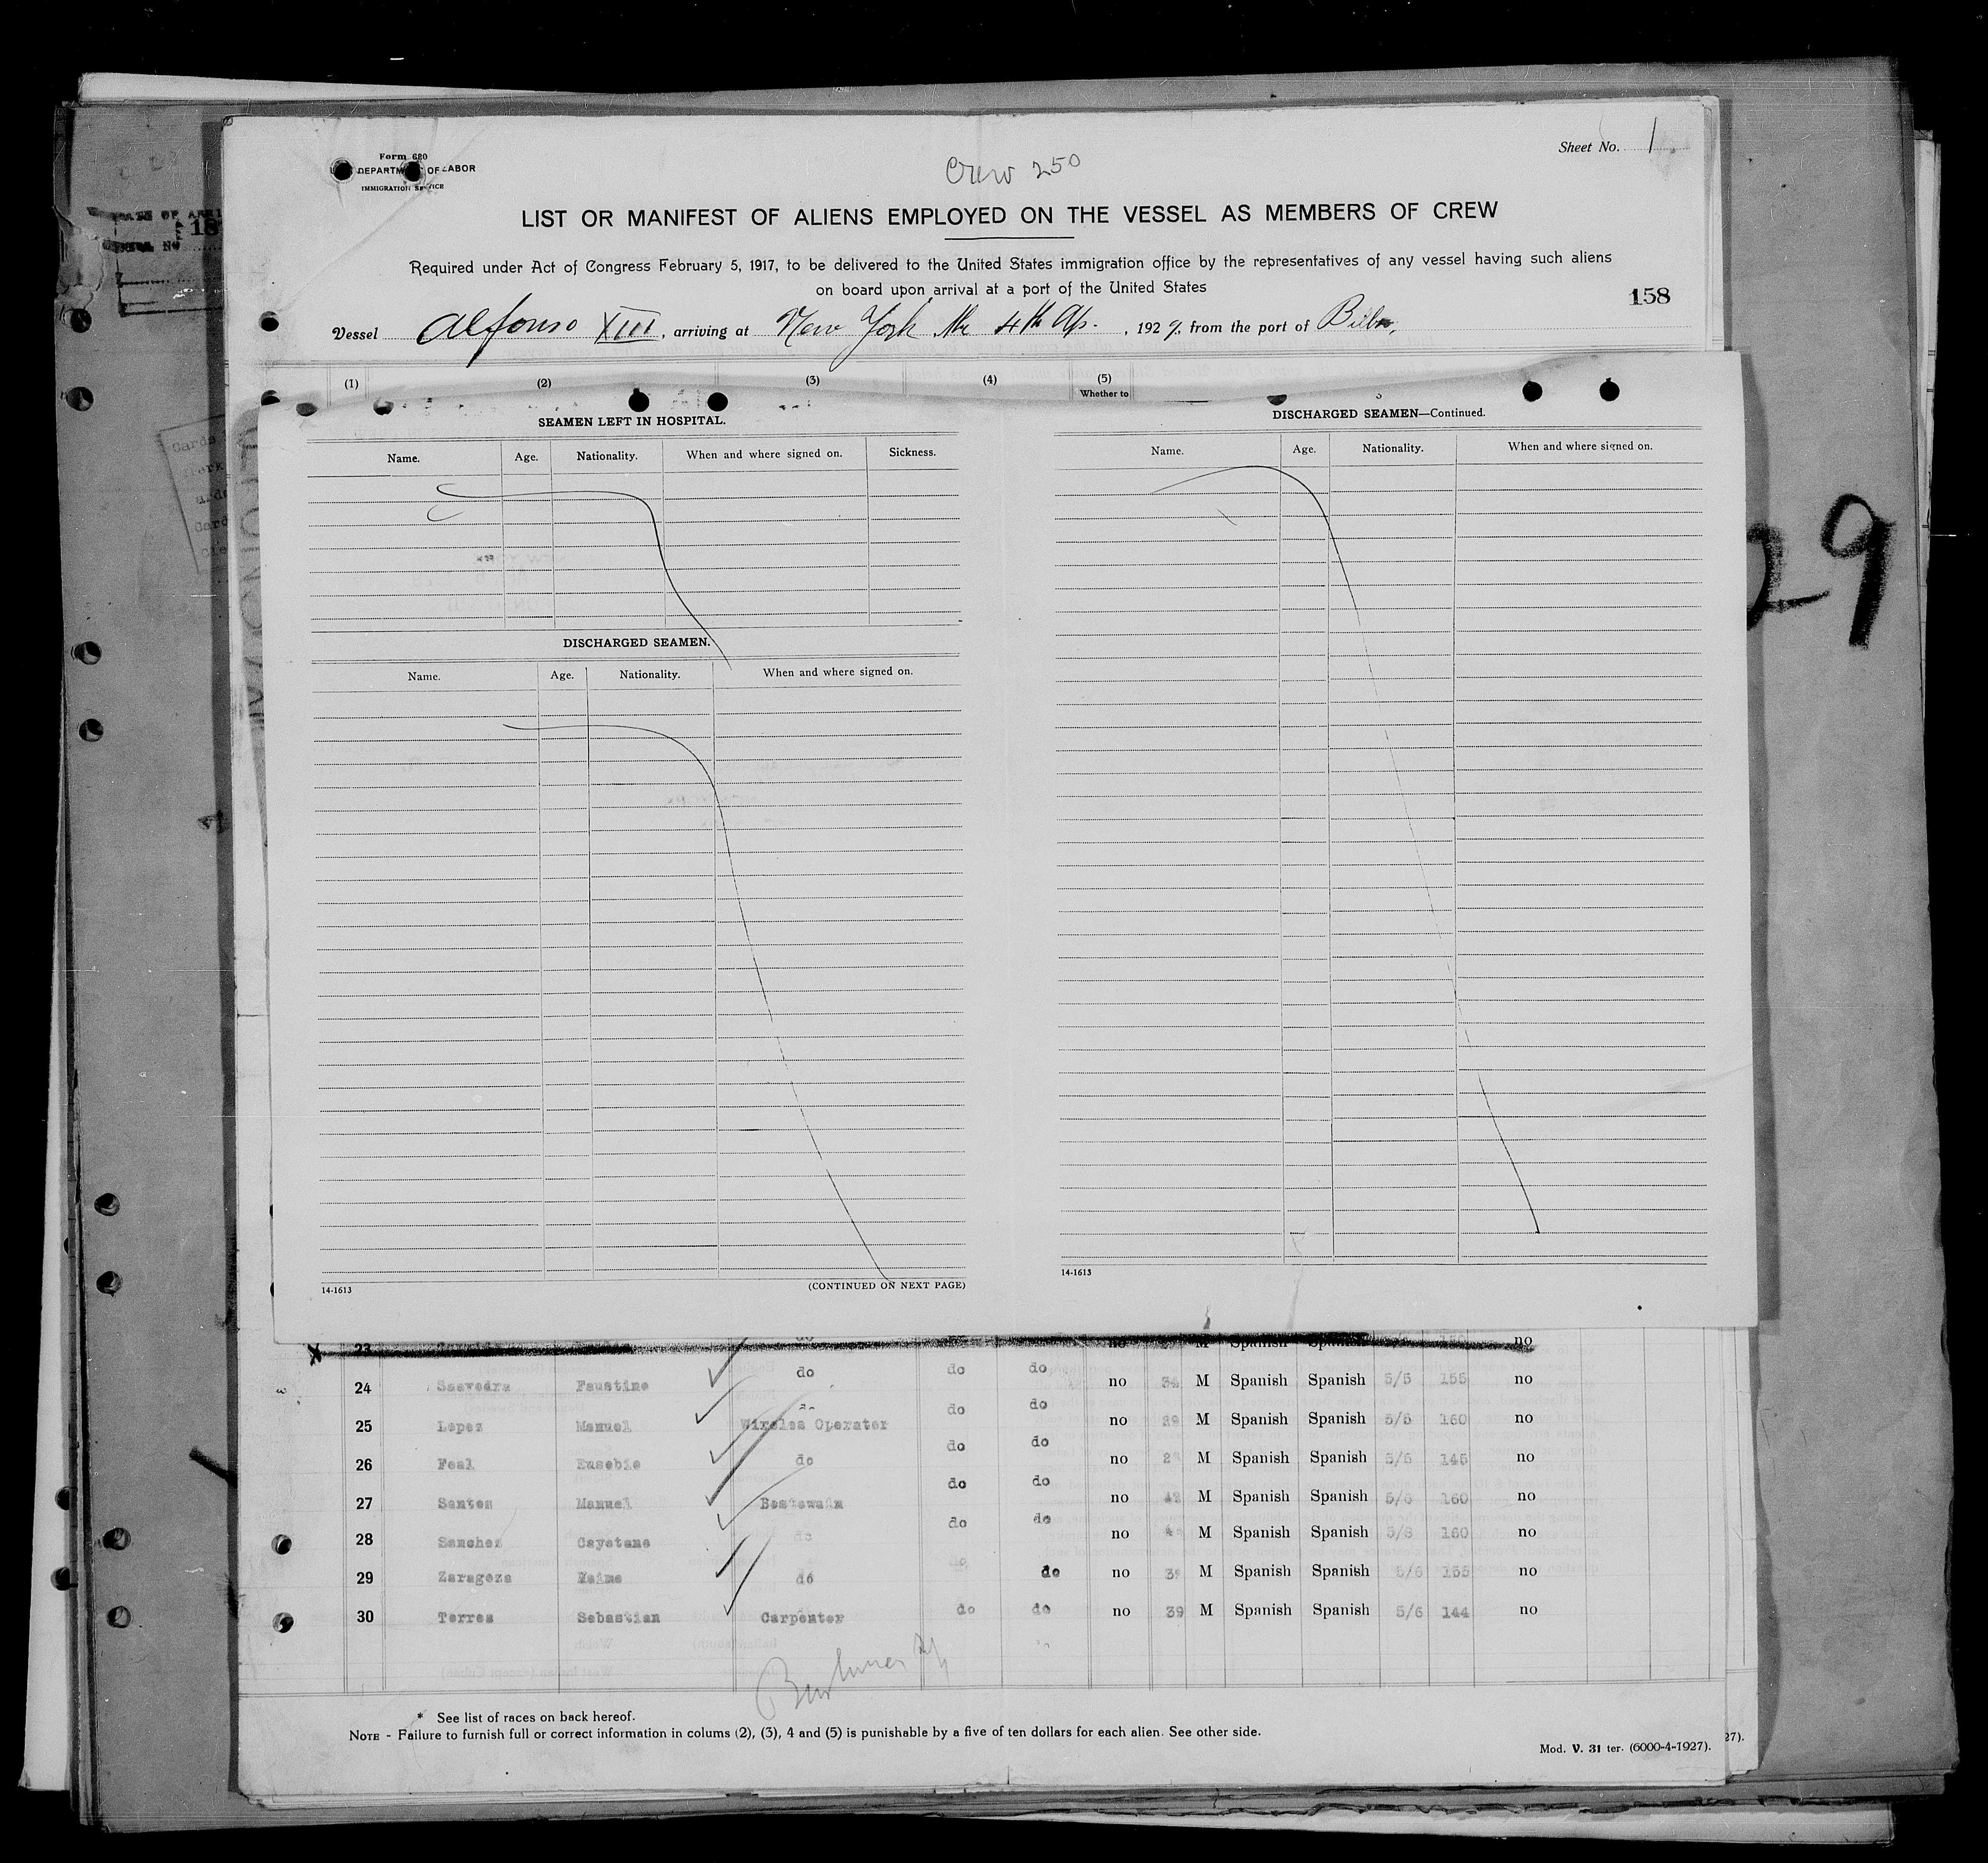 Form 680
DEPARTMENT OF LABOR
IMMIGRATION SERVICE
Crew 250
Sheet No. 1
LIST OR MANIFEST OF ALIENS EMPLOYED ON THE VESSEL AS MEMBERS OF CREW
Required under Act of Congress February 5, 1917, to be delivered to the United States immigration office by the representatives of any vessel having such aliens
on board upon arrival at a port of the United States
158
Vessel Alfonso XIII, arriving at New York the 4th Ap. , 1929, from the port of Bilbao,
(1) (2) (3) (4) (5)
Whether to
SEAMEN LEFT IN HOSPITAL.
Name. Age. Nationality. When and where signed on. Sickness.
DISCHARGED SEAMEN.
Name. Age. Nationality. When and where signed on.
14-1613 (CONTINUED ON NEXT PAGE)
DISCHARGED SEAMEN—Continued.
Name. Age. Nationality. When and where signed on.
14-1613
29
23 no M Spanish Spanish no
24 Saavedra Faustino do do do no M Spanish Spanish 5/5 155 no
25 Lopez Manuel Wireles Operator do do no 29 M Spanish Spanish 5/5 160 no
26 Feal Eusebio do do do no M Spanish Spanish 5/6 145 no
27 Santos Manuel Bostswain do do no M Spanish Spanish 5/6 160 no
28 Sanchez Cayetano do do do no M Spanish Spanish 5/8 160 no
29 Zaragoza Jaime do do do no M Spanish Spanish 5/6 155 no
30 Torres Sebastian Carpenter do do no 39 M Spanish Spanish 5/6 144 no
* See list of races on back hereof.
NOTE - Failure to furnish full or correct information in colums (2), (3), 4 and (5) is punishable by a five of ten dollars for each alien. See other side.
Mod. V. 31 ter. (6000-4-1927).
27).